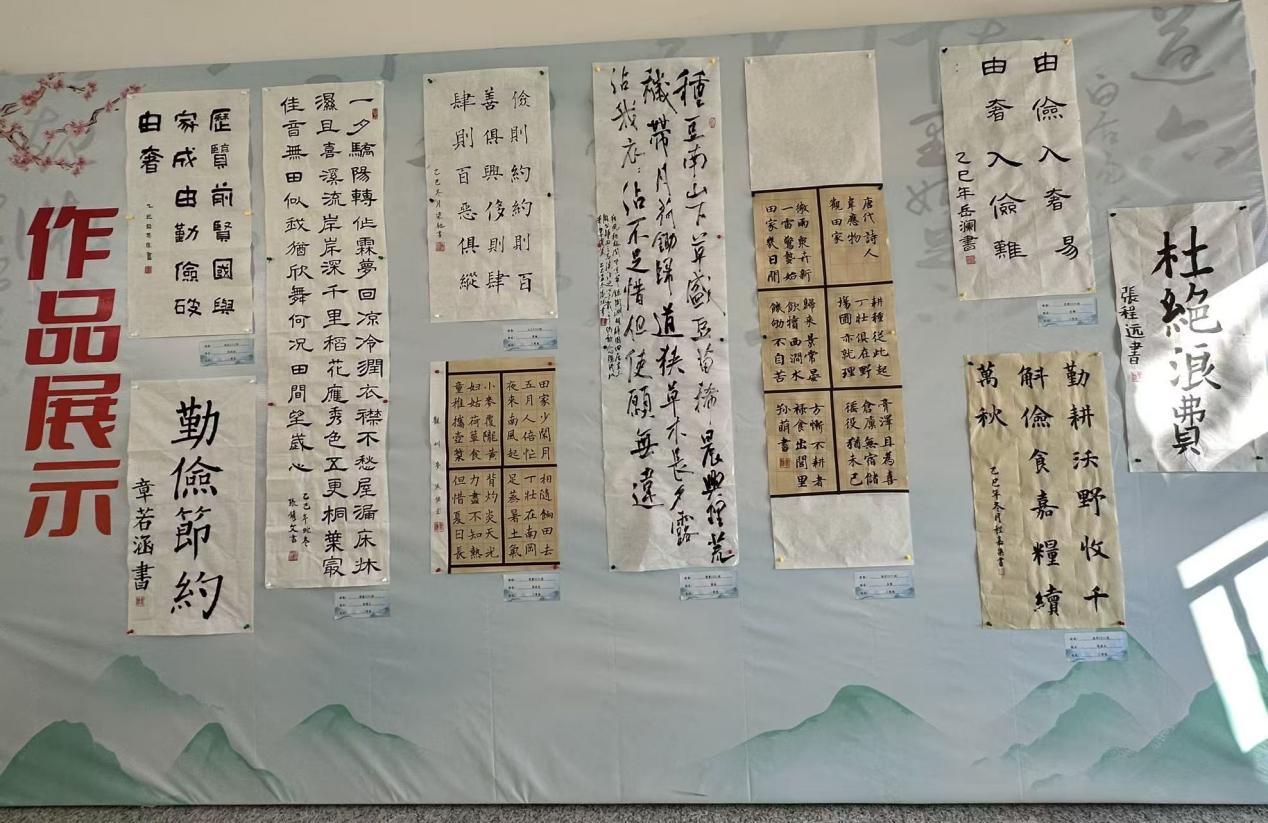 作品展示
歷賢前賢國與
家成由勤儉破
由奢
勤儉節約
章若涵書
一夕驕陽轉作霖夢回涼冷潤衣襟不愁屋漏床床
濕且喜溪流岸岸深千里稻花應秀色五更桐葉最
佳音無田似我猶欣舞何況田間望歲心
儉則約約則百
善俱興侈則肆
肆則百惡俱縱
田家少閑月
五月人倍忙
夜來南風起
小麥覆隴黃
婦姑荷簞食
童稚攜壺漿
相隨餉田去
丁壯在南岡
足蒸暑土氣
背灼炎天光
力盡不知熱
但惜夏日長
種豆南山下草盛豆苗稀晨興理荒
穢帶月荷鋤歸道狹草木長夕露
沾我衣沾不足惜但使願無違
唐代詩人
韋應物
觀田家
微雨衆卉新
一雷驚蟄始
田家幾日閒
耕種從此起
丁壯俱在野
場圃亦就理
歸來景常晏
飲犢西澗水
饑劬不自苦
膏澤且為喜
倉廩無宿儲
徭役猶未已
方慚不耕者
祿食出閭里
孙萌書
由儉入奢易
由奢入儉難
乙巳年岳澜書
勤耕沃野收千
斛儉食嘉糧續
萬秋
杜絕浪費
張程远書